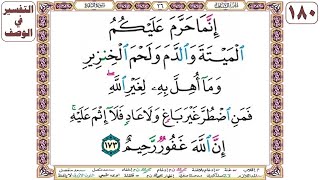 التفسير
في
الوصف
١٨٠
٢٦
إِنَّمَا حَرَّمَ عَلَيْكُمُ
الْمَيْتَةَ وَالدَّمَ وَلَحْمَ الْخِنزِيرِ
وَمَا أُهِلَّ بِهِ لِغَيْرِ اللَّهِ
فَمَنِ اضْطُرَّ غَيْرَ بَاغٍ وَلَا عَادٍ فَلَا إِثْمَ عَلَيْهِ
إِنَّ اللَّهَ غَفُورٌ رَّحِيمٌ ١٧٣